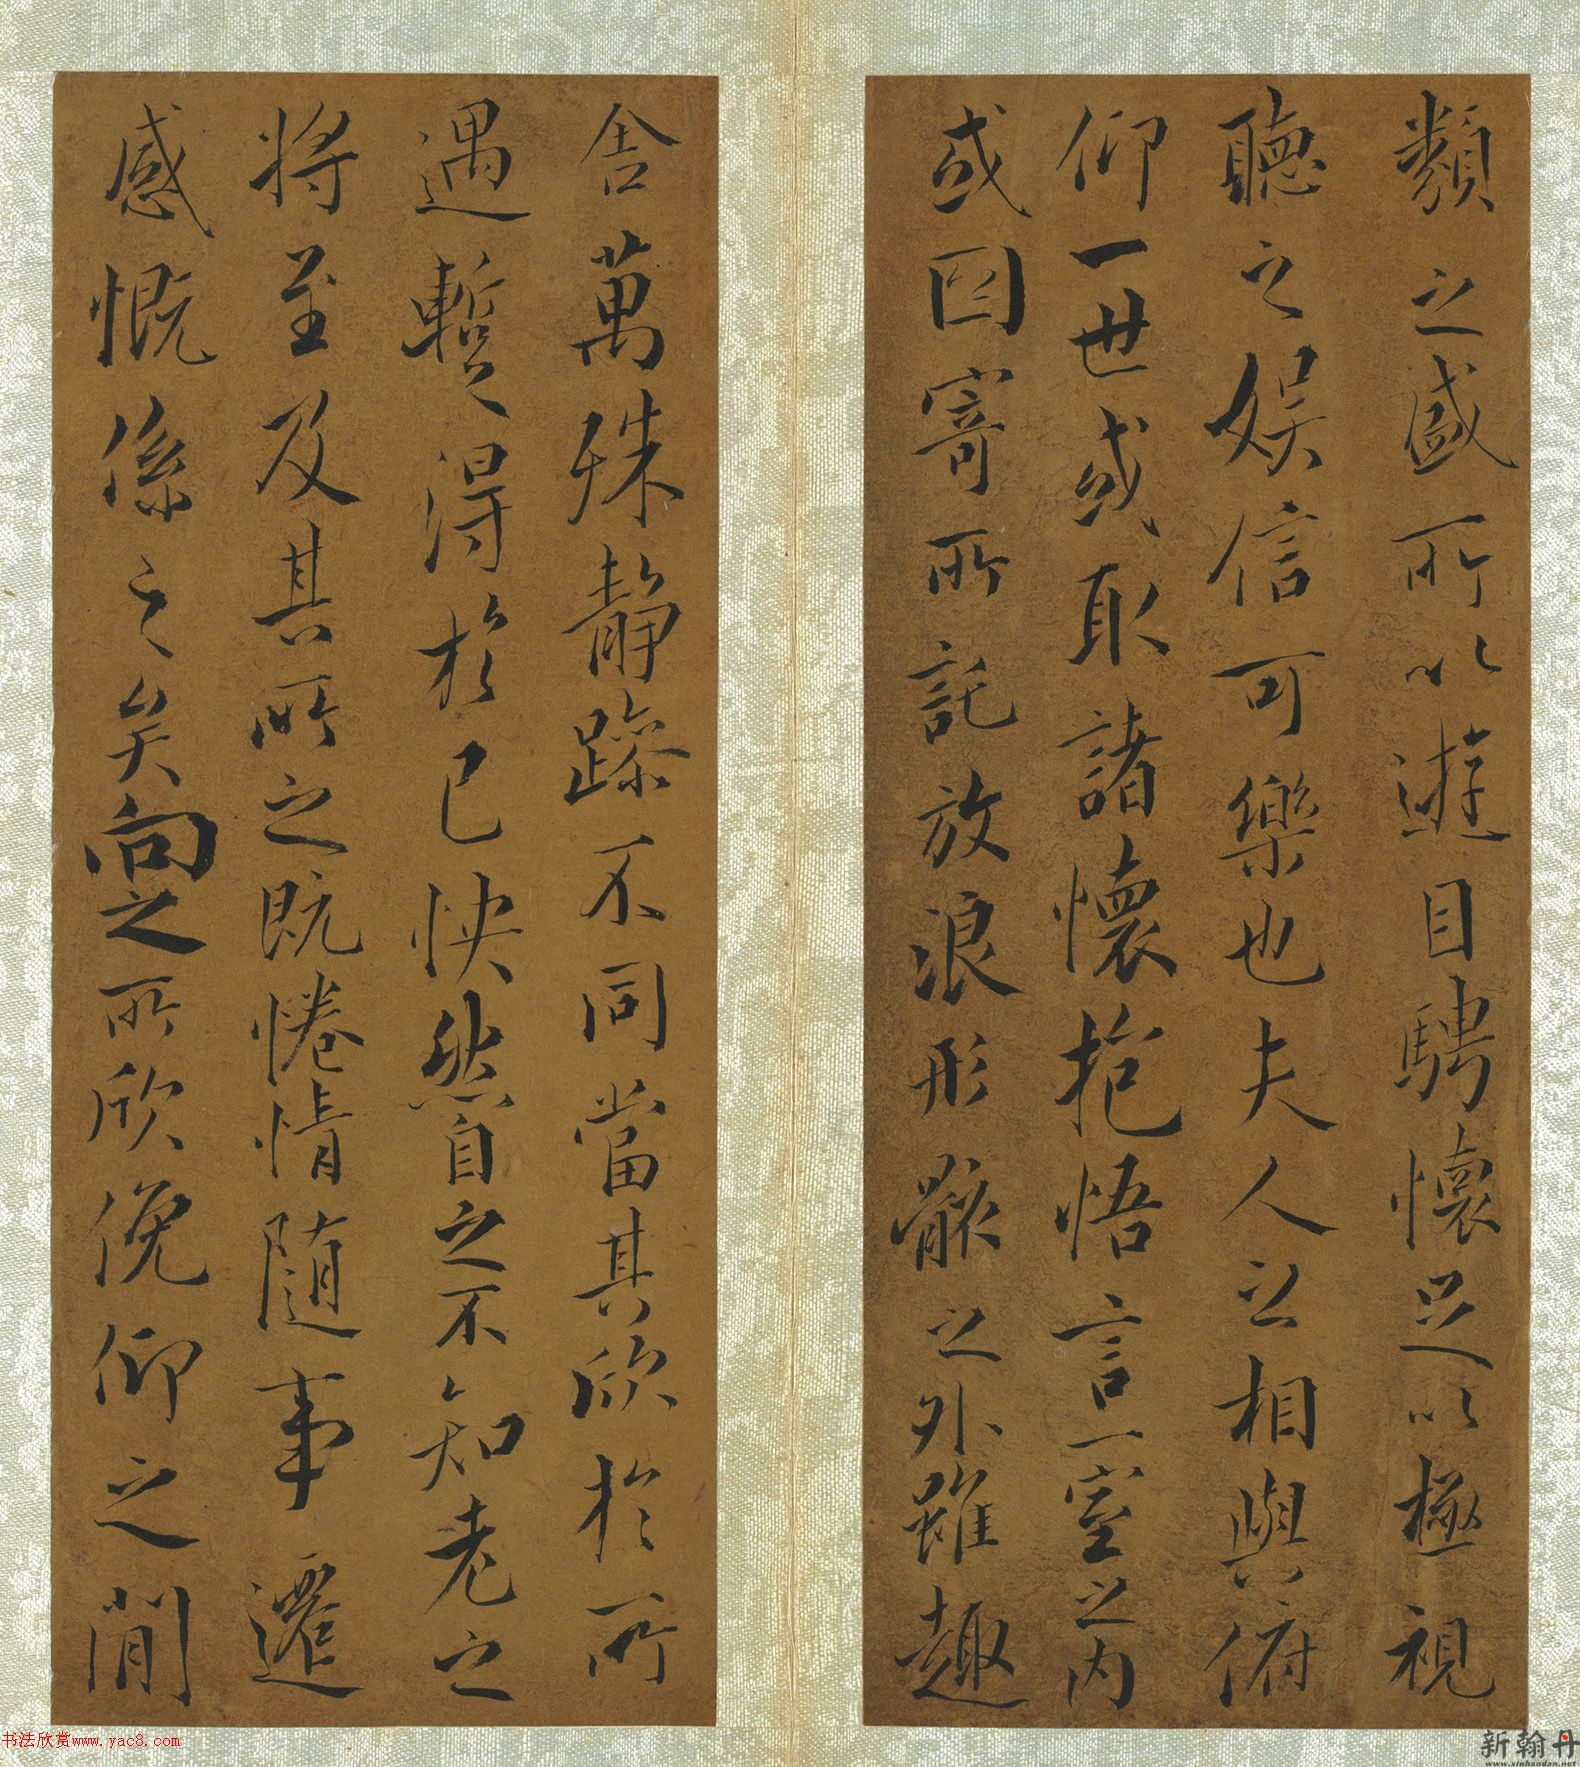 類之盛所以遊目騁懷足以極視
聽之娛信可樂也夫人之相與俯
仰一世或取諸懷抱悟言一室之内
或因寄所託放浪形骸之外雖趣
舍萬殊静躁不同當其欣於所
遇暫得於己怏然自之不知老之
将至及其所之既惓情随事遷
感慨係之矣向之所欣俛仰之閒
书法欣赏www.yac8.com
新翰丹
www.xinhandan.net